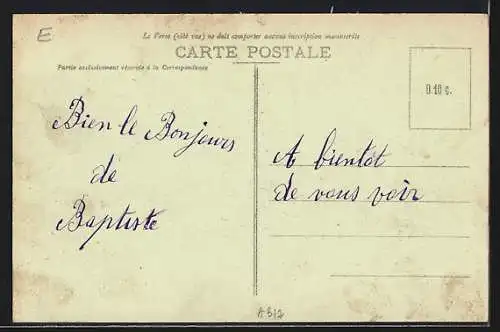 E
Le Verso (côté vue) ne doit comporter aucune inscription manuscrite
CARTE POSTALE
Partie exclusivement réservée à la Correspondance
0.10 c.
Bien le Bonjours
de
Baptiste
A bientot
de vous voir
A512